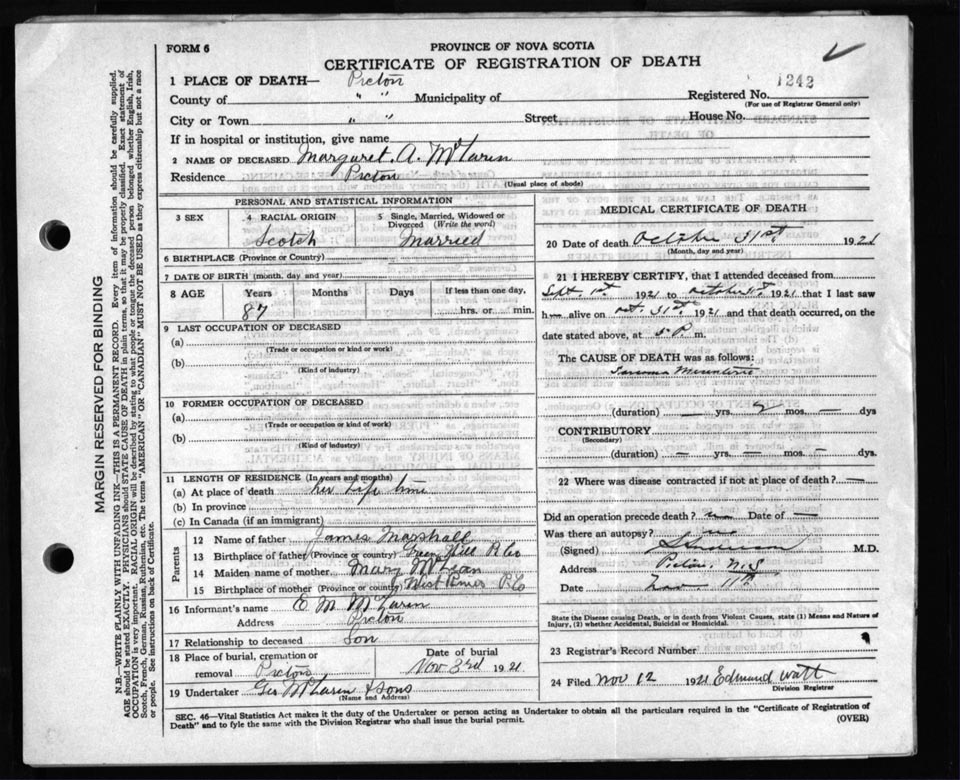 FORM 6
PROVINCE OF NOVA SCOTIA
CERTIFICATE OF REGISTRATION OF DEATH
1 PLACE OF DEATH— Pictou
County of " " Municipality of
Registered No. 1242
(For use of Registrar General only)
City or Town " " Street House No.
If in hospital or institution, give name
2 NAME OF DECEASED Margaret A. McLaren
Residence Pictou
(Usual place of abode)
MARGIN RESERVED FOR BINDING
N.B.—WRITE PLAINLY WITH UNFADING INK—THIS IS A PERMANENT RECORD. Every item of information should be carefully supplied.
AGE should be stated EXACTLY. PHYSICIANS should STATE CAUSE OF DEATH in plain terms, so that it may be properly classified. Exact statement of
OCCUPATION is very important. RACIAL ORIGIN will be described by stating to what people or tongue the deceased person belonged whether English, Irish,
Scotch, French, German, Russian, Ruthenian, etc. The terms "AMERICAN" OR "CANADIAN" MUST NOT BE USED as they express citizenship but not a race
or people. See instructions on back of Certificate.
PERSONAL AND STATISTICAL INFORMATION
3 SEX
4 RACIAL ORIGIN
Scotch
5 Single, Married, Widowed or
Divorced (Write the word)
Married
6 BIRTHPLACE (Province or Country)
7 DATE OF BIRTH (month, day and year)
8 AGE Years Months Days If less than one day,
87 hrs. or min.
9 LAST OCCUPATION OF DECEASED
(a)
(Trade or occupation or kind or work)
(b)
(Kind of industry)
10 FORMER OCCUPATION OF DECEASED
(a)
(Trade or occupation or kind of work)
(b)
(Kind of industry)
11 LENGTH OF RESIDENCE (In years and months)
(a) At place of death her Life time
(b) In province
(c) In Canada (if an immigrant)
Parents
12 Name of father James Marshall
13 Birthplace of father (Province or country) Green Hill P. Co
14 Maiden name of mother Mary McLean
15 Birthplace of mother (Province or country) West River P. Co
16 Informant's name McLaren
Address Pictou
17 Relationship to deceased Son
18 Place of burial, cremation or
removal Pictou
Date of burial
Nov 3rd 1921
19 Undertaker Geo McLaren & Sons
(Name and Address)
MEDICAL CERTIFICATE OF DEATH
20 Date of death October 31st 1921
(Month, day and year)
21 I HEREBY CERTIFY, that I attended deceased from
Sept. 1st 1921 to October 31st 1921 that I last saw
h alive on oct. 31st 1921 and that death occurred, on the
date stated above, at 5 P. m.
The CAUSE OF DEATH was as follows:
(duration) — yrs. 2 mos. — dys
CONTRIBUTORY
(Secondary)
(duration) — yrs. — mos. — dys.
22 Where was disease contracted if not at place of death? —
Did an operation precede death? no Date of —
Was there an autopsy? no
(Signed) Anderson M.D.
Address Pictou N.S
Date Nov 11th
State the Disease causing Death, or in death from Violent Causes, state (1) Means and Nature of
Injury, (2) whether Accidental, Suicidal or Homicidal.
23 Registrar's Record Number
24 Filed Nov 12 1921 Edmund Watt
Division Registrar
SEC. 46—Vital Statistics Act makes it the duty of the Undertaker or person acting as Undertaker to obtain all the particulars required in the "Certificate of Registration of
Death" and to fyle the same with the Division Registrar who shall issue the burial permit.
(OVER)